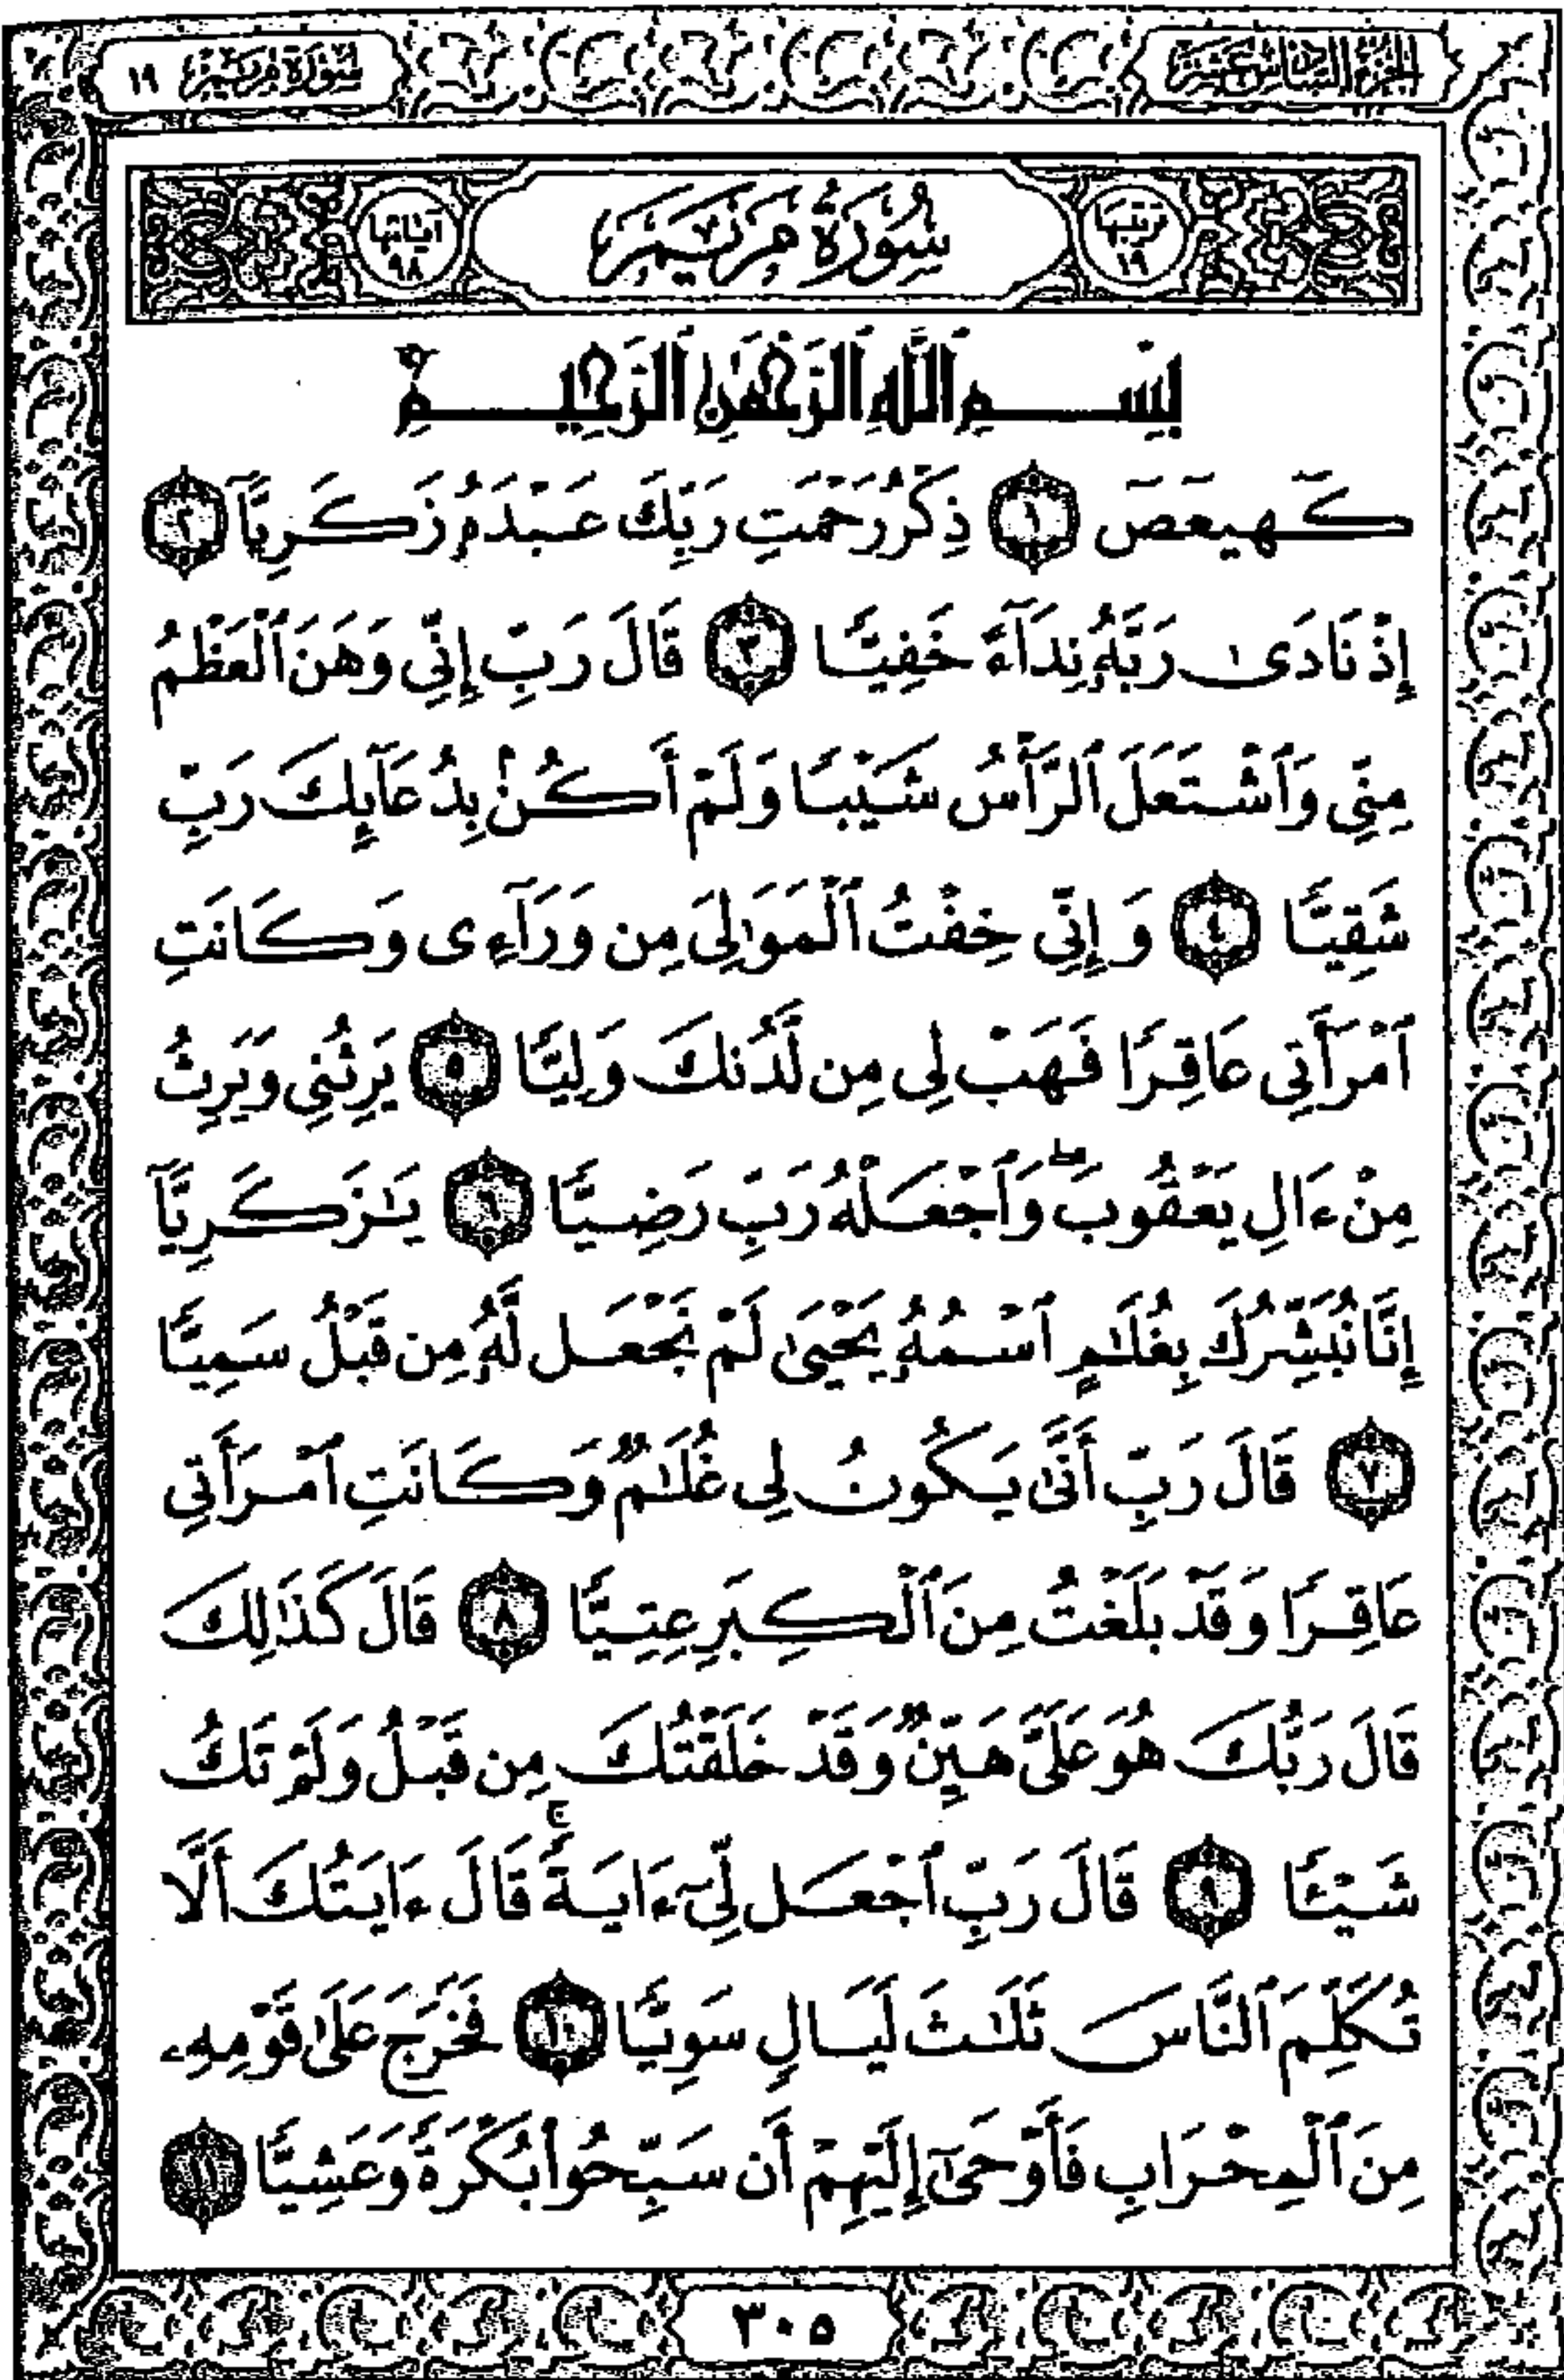 الجزء السادس عشر
سورة مريم ١٩
ترتيبها ١٩
سُورَةُ مَرْيَمَ
آياتها ٩٨
بِسْمِ ٱللَّهِ ٱلرَّحْمَٰنِ ٱلرَّحِيمِ
كٓهيعٓصٓ ١ ذِكْرُ رَحْمَتِ رَبِّكَ عَبْدَهُۥ زَكَرِيَّآ ٢
إِذْ نَادَىٰ رَبَّهُۥ نِدَآءً خَفِيًّا ٣ قَالَ رَبِّ إِنِّى وَهَنَ ٱلْعَظْمُ
مِنِّى وَٱشْتَعَلَ ٱلرَّأْسُ شَيْبًا وَلَمْ أَكُنۢ بِدُعَآئِكَ رَبِّ
شَقِيًّا ٤ وَإِنِّى خِفْتُ ٱلْمَوَٰلِىَ مِن وَرَآءِى وَكَانَتِ
ٱمْرَأَتِى عَاقِرًا فَهَبْ لِى مِن لَّدُنكَ وَلِيًّا ٥ يَرِثُنِى وَيَرِثُ
مِنْ ءَالِ يَعْقُوبَ ۖ وَٱجْعَلْهُ رَبِّ رَضِيًّا ٦ يَٰزَكَرِيَّآ
إِنَّا نُبَشِّرُكَ بِغُلَٰمٍ ٱسْمُهُۥ يَحْيَىٰ لَمْ نَجْعَل لَّهُۥ مِن قَبْلُ سَمِيًّا
٧ قَالَ رَبِّ أَنَّىٰ يَكُونُ لِى غُلَٰمٌ وَكَانَتِ ٱمْرَأَتِى
عَاقِرًا وَقَدْ بَلَغْتُ مِنَ ٱلْكِبَرِ عِتِيًّا ٨ قَالَ كَذَٰلِكَ
قَالَ رَبُّكَ هُوَ عَلَىَّ هَيِّنٌ وَقَدْ خَلَقْتُكَ مِن قَبْلُ وَلَمْ تَكُ
شَيْـًٔا ٩ قَالَ رَبِّ ٱجْعَل لِّىٓ ءَايَةً ۚ قَالَ ءَايَتُكَ أَلَّا
تُكَلِّمَ ٱلنَّاسَ ثَلَٰثَ لَيَالٍ سَوِيًّا ١٠ فَخَرَجَ عَلَىٰ قَوْمِهِۦ
مِنَ ٱلْمِحْرَابِ فَأَوْحَىٰٓ إِلَيْهِمْ أَن سَبِّحُوا۟ بُكْرَةً وَعَشِيًّا ١١
٣٠٥